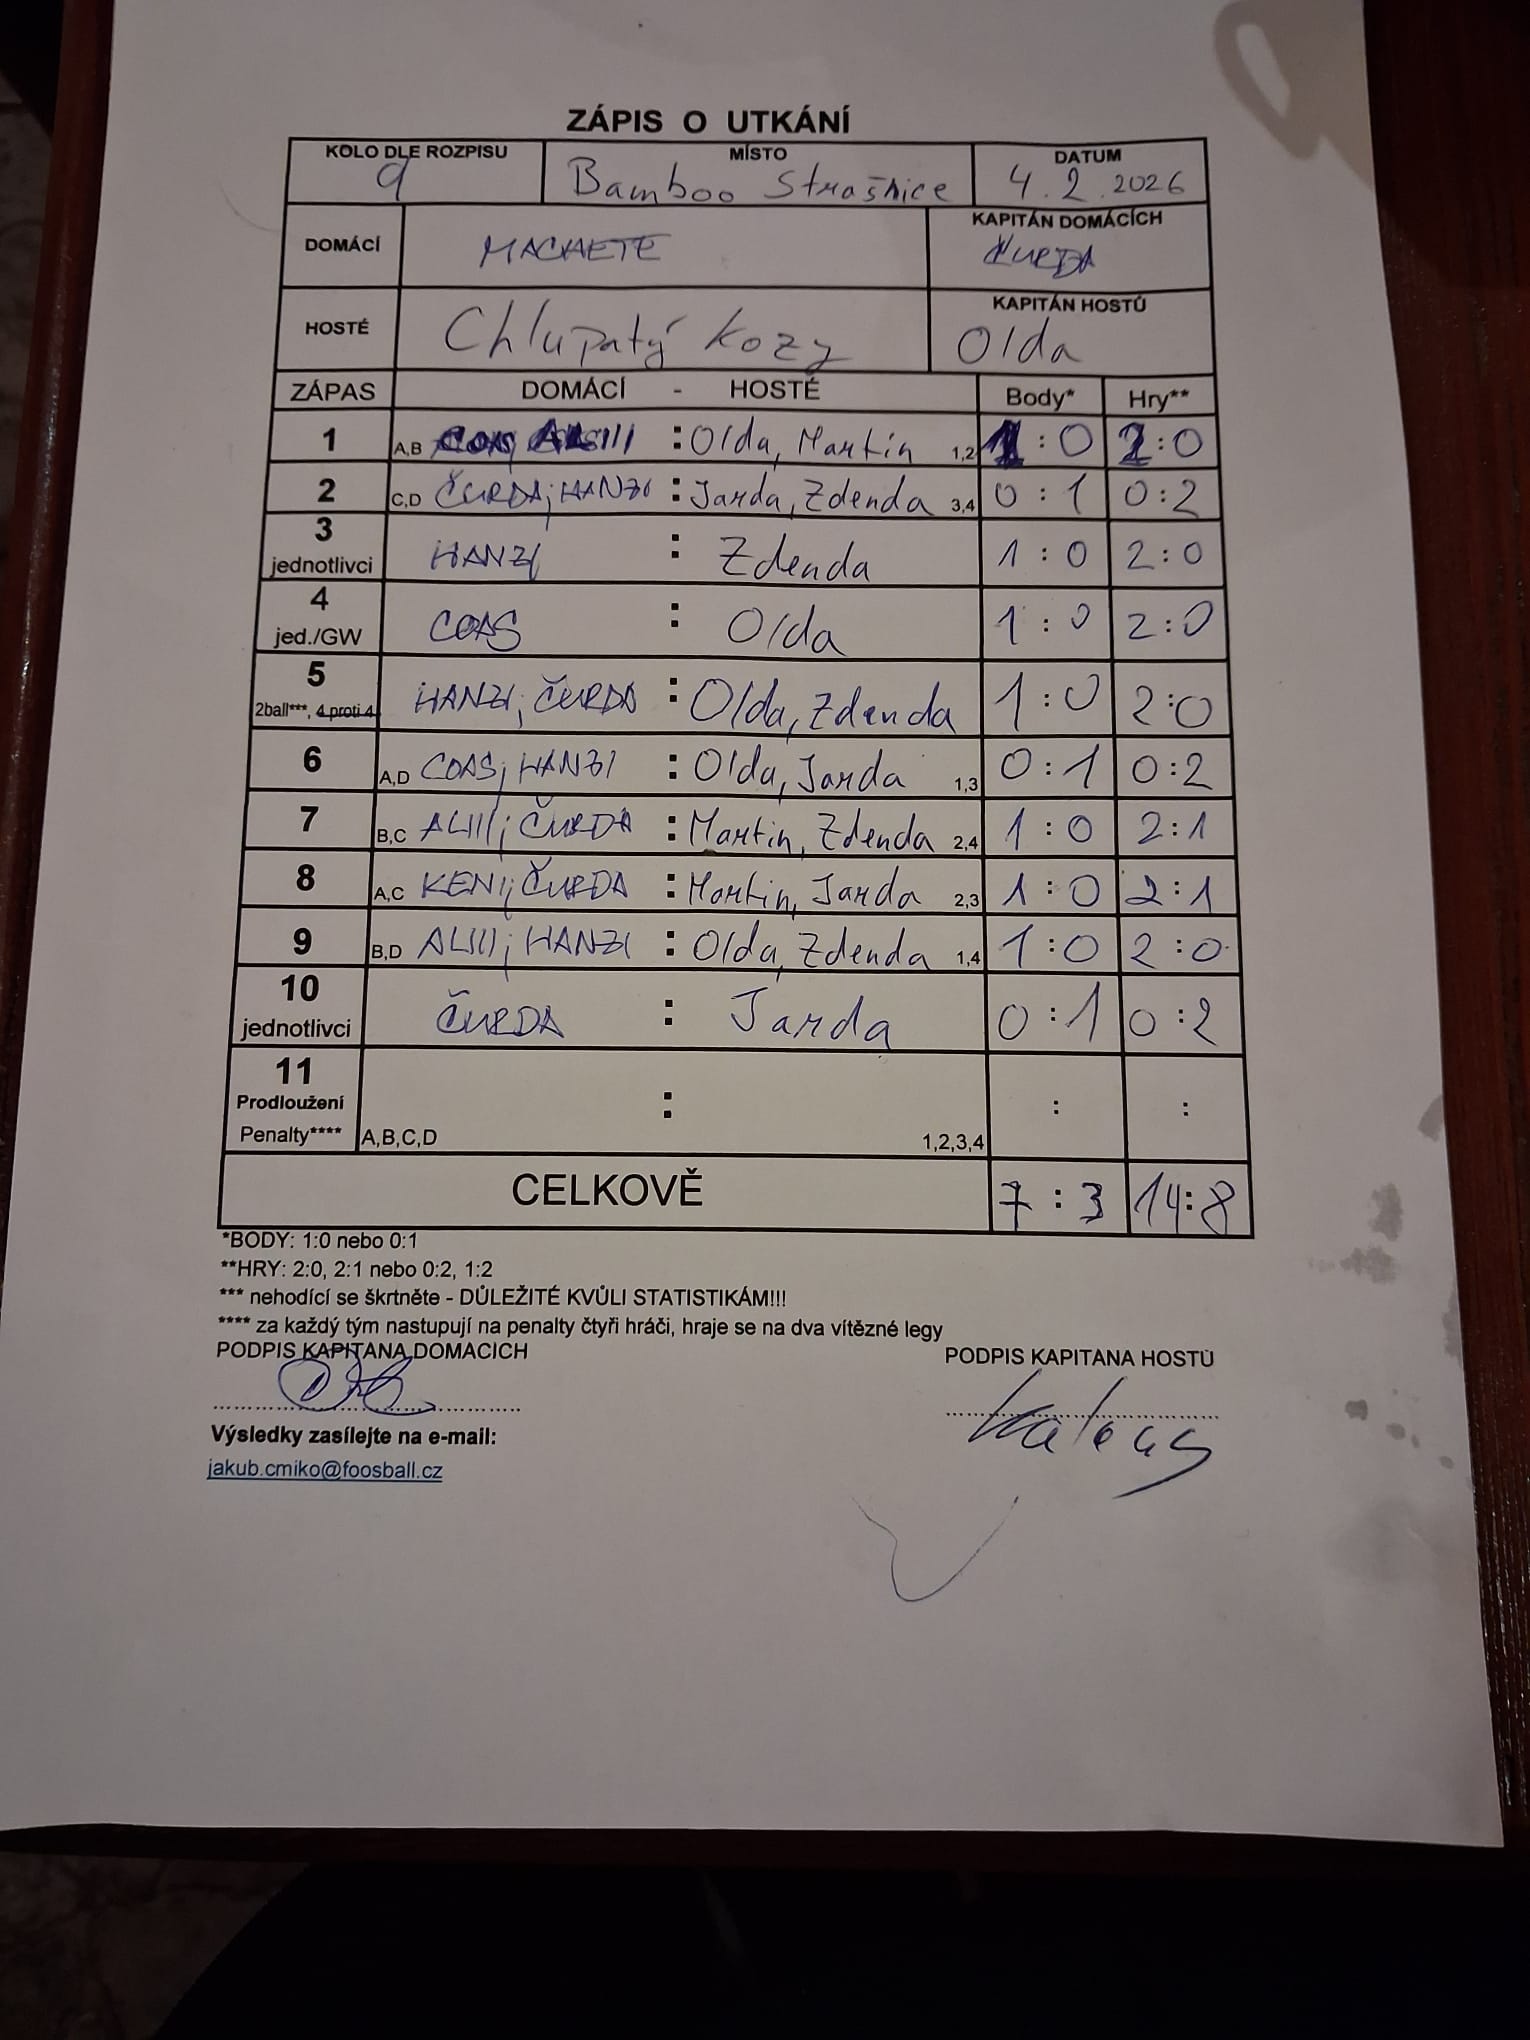 ZÁPIS O UTKÁNÍ
KOLO DLE ROZPISU MÍSTO DATUM
9 Bamboo Strašnice 4.2.2026
DOMÁCÍ MACHETE KAPITÁN DOMÁCÍCH
ČURDA
HOSTÉ Chlupatý kozy KAPITÁN HOSTŮ
Olda
ZÁPAS DOMÁCÍ - HOSTÉ Body* Hry**
1 A,B COAS, ALIII : Olda, Martin 1,2 1:0 2:0
2 C,D ČURDA; HANZI : Jarda, Zdenda 3,4 0:1 0:2
3
jednotlivci HANZI : Zdenda 1:0 2:0
4
jed./GW COAS : Olda 1:0 2:0
5
2ball***, 4 proti 4 HANZI; ČURDA : Olda, Zdenda 1:0 2:0
6 A,D COAS; HANZI : Olda, Jarda 1,3 0:1 0:2
7 B,C ALIII; ČURDA : Martin, Zdenda 2,4 1:0 2:1
8 A,C KENI; ČURDA : Martin, Jarda 2,3 1:0 2:1
9 B,D ALIII; HANZI : Olda, Zdenda 1,4 1:0 2:0
10
jednotlivci ČURDA : Jarda 0:1 0:2
11
Prodloužení : : :
Penalty**** A,B,C,D 1,2,3,4
CELKOVĚ 7:3 14:8
*BODY: 1:0 nebo 0:1
**HRY: 2:0, 2:1 nebo 0:2, 1:2
*** nehodící se škrtněte - DŮLEŽITÉ KVŮLI STATISTIKÁM!!!
**** za každý tým nastupují na penalty čtyři hráči, hraje se na dva vítězné legy
PODPIS KAPITANA DOMACICH PODPIS KAPITANA HOSTŮ
Výsledky zasílejte na e-mail:
jakub.cmiko@foosball.cz